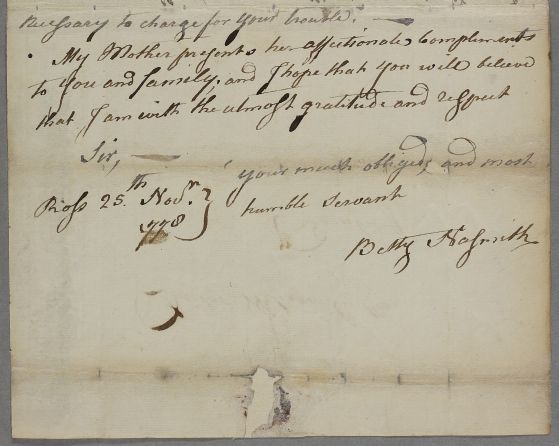 necessary to charge for your trouble. —
My Mother presents her affectionate Complements
to you and family, and I hope that you will believe
that I am with the utmost gratitude and respect
Sir, —
your much obliged, and most
Ross 25.th Novr. }
1778
humble servant
Betty Nasmith